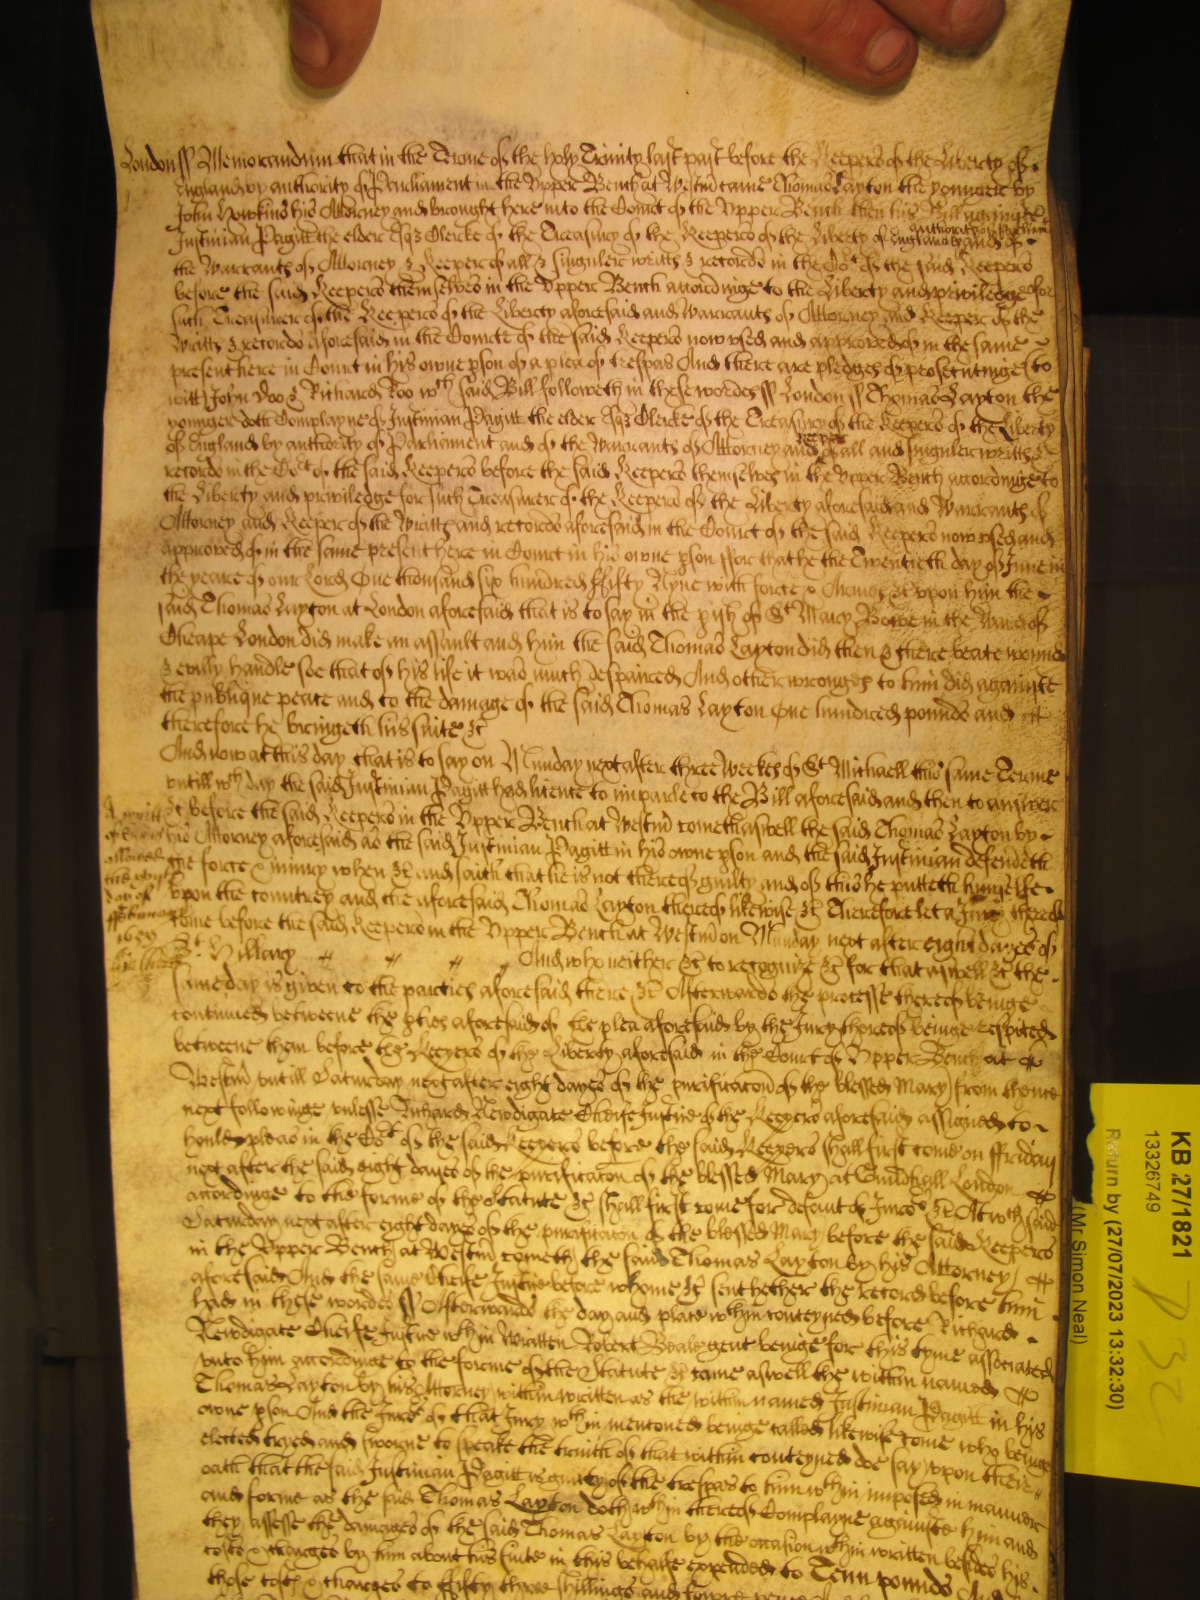 London ss Memorandum that in the Terme of the holy Trinity last past before the Keepers of the Liberty of
England by authority of Parliament in the Upper Bench at Westm came Thomas Layton the younger by
John Hawkins his Attorney and brought here into the Court of the Upper Bench then his Bill againste
Justinian Pagitt the elder Esqz Clerke of the Treasury of the Keepers of the Liberty of England by authority of Parliamt and of
the Warrants of Attorney & Keeper of all & singuler writts & records in the Cort of the said Keepers
before the said Keepers themselves in the Upper Bench accordinge to the Liberty and priviledge for
such Treasurer of the Keepers of the Liberty aforesaid and Warrants of Attorney and Keeper of the
Writts & records aforesaid in the Courte of the said Keepers now used and approved of in the same
present here in Court in his owne pson of a plea of trespas And there are pledges of prosecutinge to
witt John Doo & Richard Roo wch said Bill followeth in these wordes ss London ss Thomas Layton the
younger doth Complayne of Justinian Pagitt the elder Esqz Clerke of the Treasury of the Keepers of the Liberty
of England by authority of Parliament and of the Warrants of Attorney and Keeper of all and singuler writts &
records in the Cort of the said Keepers before the said Keepers themselves in the Upper Bench accordinge to
the Liberty and priviledge for such Treasurer of the Keepers of the Liberty aforesaid and Warrants of
Attorney and Keeper of the Writts and records aforesaid in the Court of the said Keepers now used and
approved of in the same present here in Court in his owne pson ffor that he the Twentieth day of June in
the yeare of our Lord One thousand six hundred ffifty Nyne with force & Armes &c upon him the
said Thomas Layton at London aforesaid that is to say in the pish of St Mary Bowe in the Ward of
Cheape London did make an assault and him the said Thomas Layton did then & there beate wound
& evilly handle soe that of his life it was much despaired And other wronges to him did againste
the publique peace and to the damage of the said Thomas Layton One hundred pounds and
therefore he bringeth his suite &c
And now at this day that is to say on Munday next after three Weekes of St Michaell this same Terme
untill wch day the said Justinian Pagitt had licence to imparle to the Bill aforesaid and then to answer
&c before the said Keepers in the Upper Bench at Westm cometh aswell the said Thomas Layton by
his Attorney aforesaid as the said Justinian Pagitt in his owne pson and the said Justinian defendeth
the force & iniury when &c and saith that he is not thereof guilty and of this he putteth himselfe
upon the countrey and the aforesaid Thomas Layton thereof likewise &c Therefore let a Jury thereof
come before the said Keepers in the Upper Bench at Westm on Munday next after eight dayes of
St Hillary And who neither &c to recognize &c for that aswell &c the
same day is given to the parties aforesaid there &c Afterwards the processe thereof beinge
continued betweene the pties aforesaid of the plea aforesaid by the Jury thereof beinge respited
betweene them before the Keepers of the Liberty aforesaid in the Court of Upper Bench at
Westm untill Saturday next after eight dayes of the purificacon of the blessed Mary from thence
next followinge unlesse Richard Newdigate Cheife Justice of the Keepers aforesaid assigned to
hould pleas in the Cort of the said Keepers before the said Keepers shall first come on ffriday
next after the said eight dayes of the purificacon of the blessed Mary at Guildhall London
accordinge to the forme of the Statute &c shall first come for default of Jurors &c At wch said
Saturday next after eight dayes of the purificacon of the blessed Mary before the said Keepers
in the Upper Bench at Westm cometh the said Thomas Layton by his Attorney
aforesaid And the same Cheife Justice before whome &c sent hether the record before him
had in these wordes ss Afterwards the day and place wthin conteyned before Richard
Newdigate Cheife Justice wthin written Robert gent beinge for this tyme associated
unto him accordinge to the forme of the Statute &c came aswell the within named
Thomas Layton by his Attorney within written as the within named Justinian Pagitt in his
owne pson And the Jurors of that Jury wthin mentoned beinge called likewise come who beinge
elected tryed and sworne to speake the truith of that within conteyned doe say upon their
oath that the said Justinian Pagitt is guilty of the trespas to him wthin imposed in manner
and forme as the said Thomas Layton doth wthin thereof Complayne againste him and
they assesse the damages of the said Thomas Layton by the occasion wthin written besides his
costs & charges by him about his suite in this behalfe expended to Tenn pounds And
those costs & charges to ffifty three shillings and foure pence
A writt
of
allowed
the
day of
ffebruary
1659
KB 27/1821
13326749
Return by (27/07/2023 13:32:30)
(Mr Simon Neal)